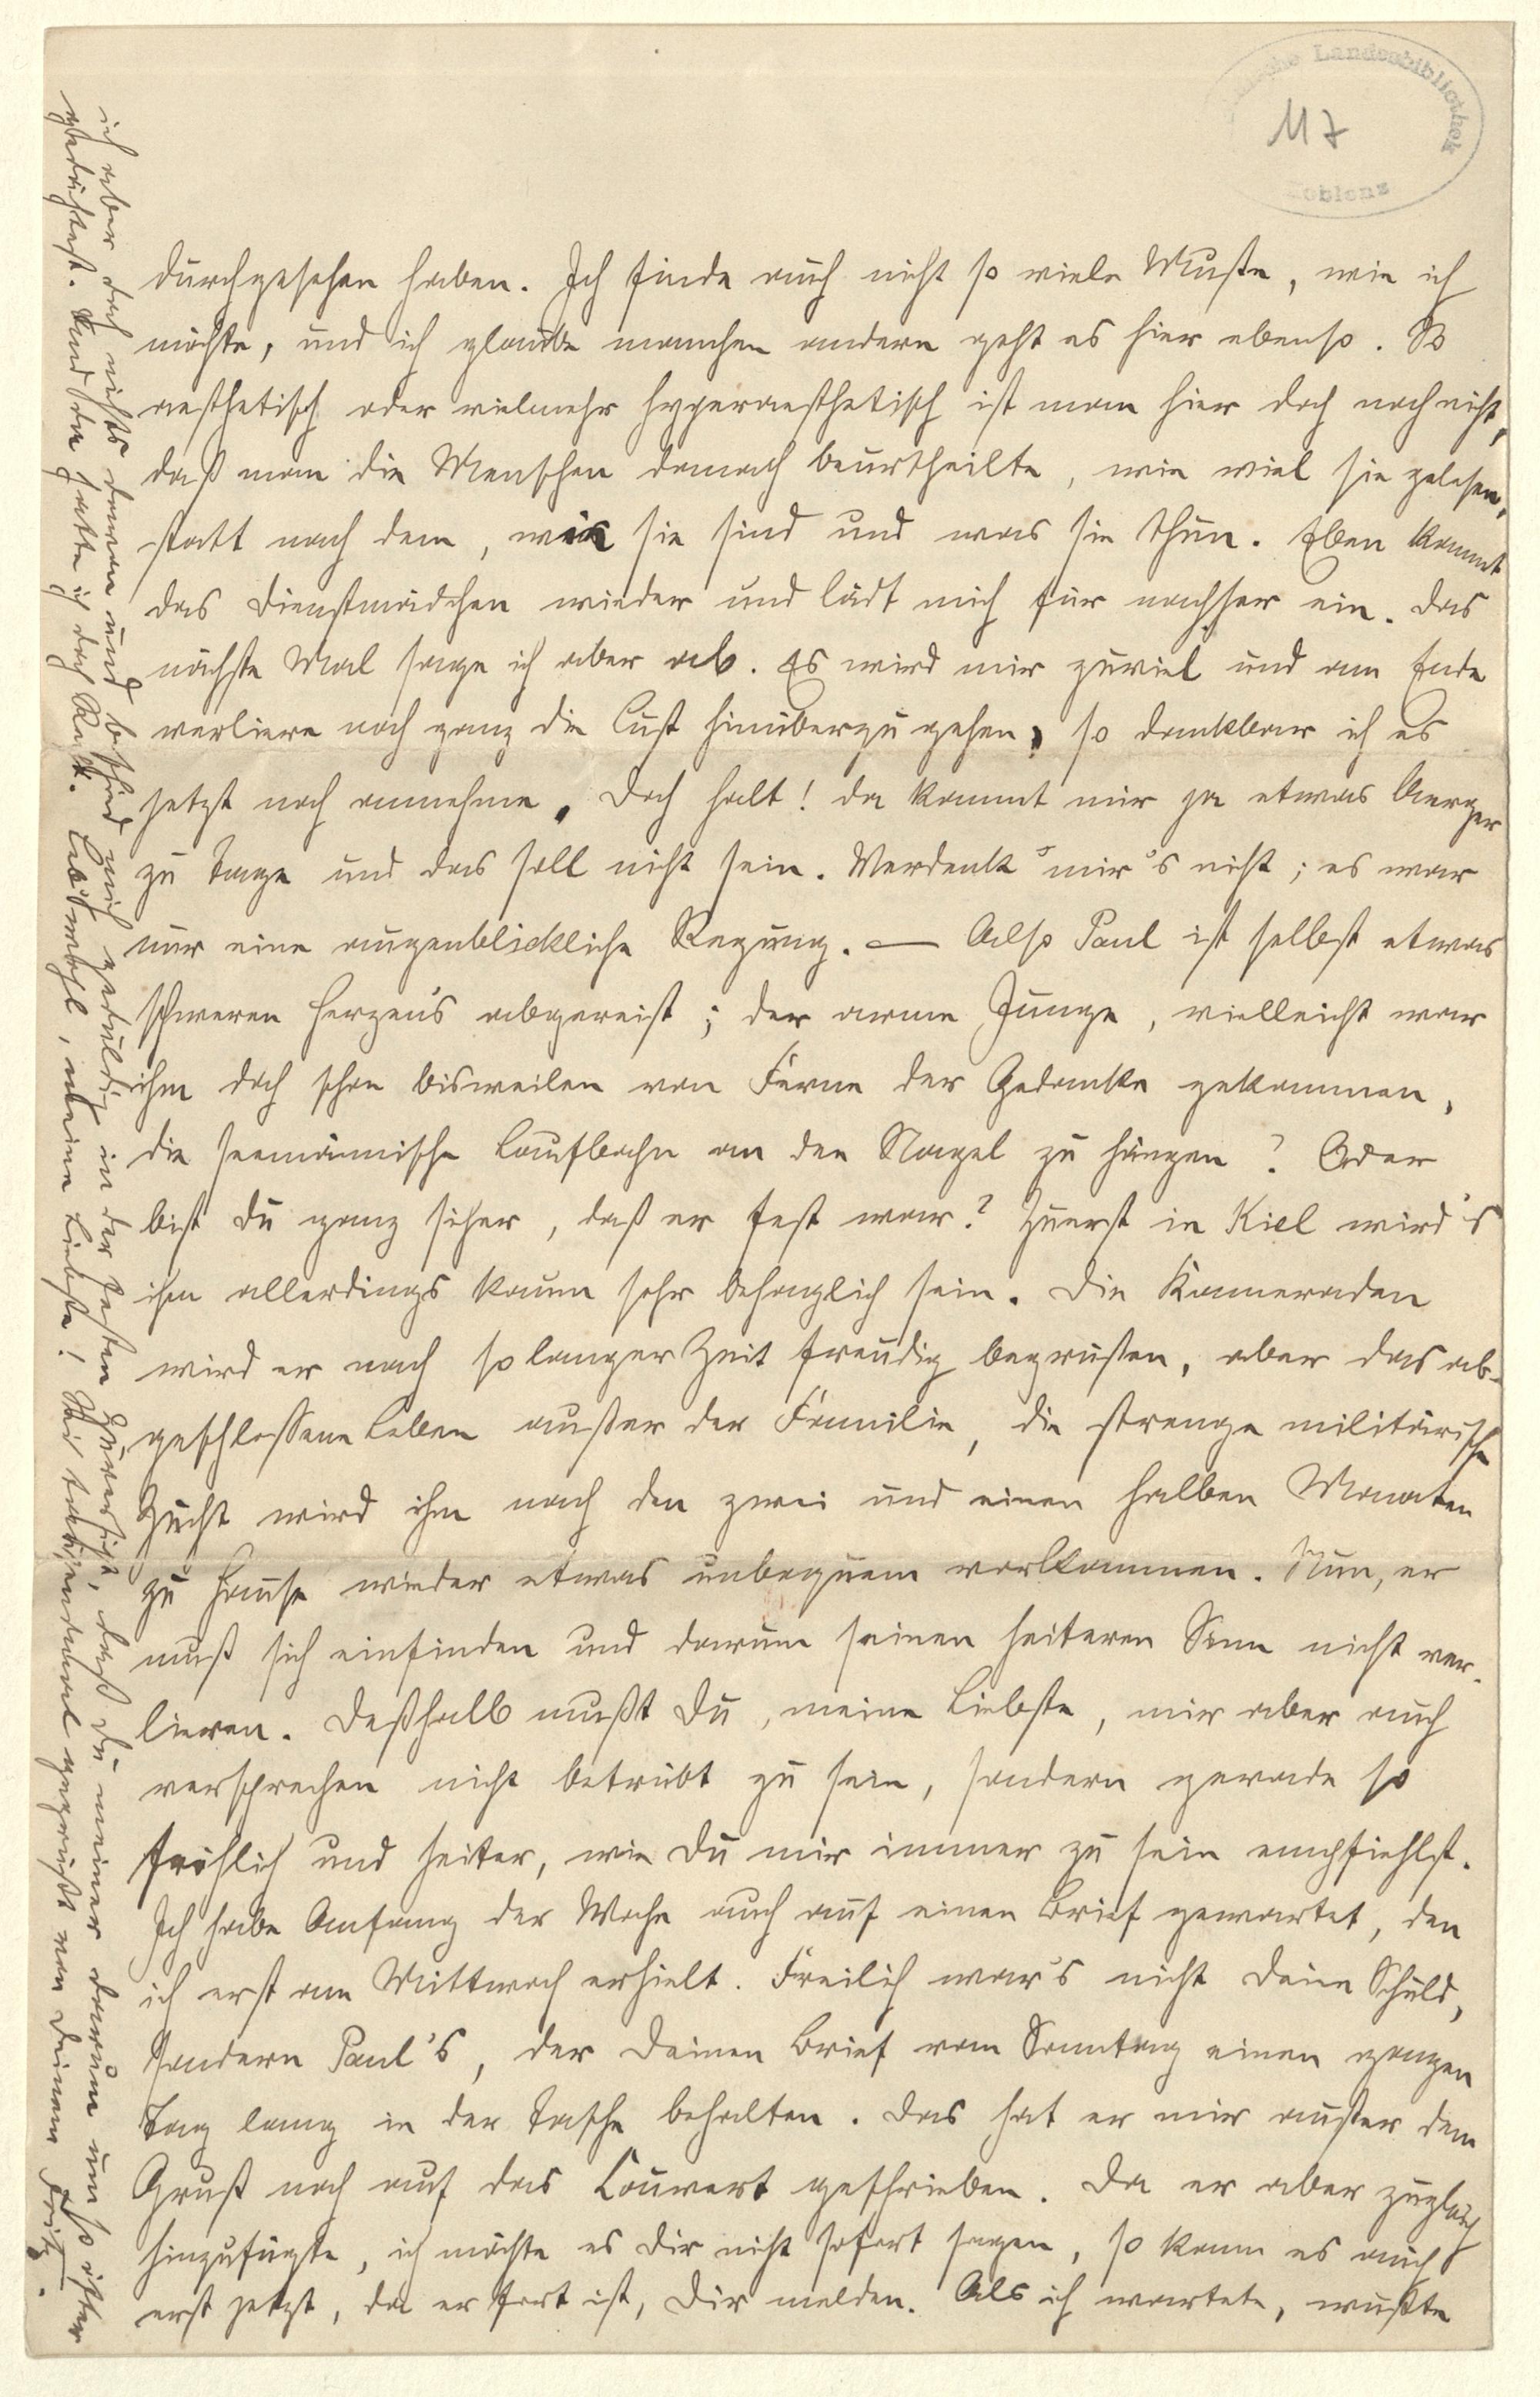 Landesbibliothek
Koblenz
117
durchgesehen haben. Ich finde auch nicht so viele Muße, wie ich
möchte, und ich glaube manchen andern geht es hier ebenso. So
aesthetisch oder vielmehr hyperaesthetisch ist man hier doch noch nicht,
daß man die Menschen danach beurtheilte, wie viel sie gelesen,
statt nach dem, wie sie sind und was sie thun. Eben kommt
das Dienstmädchen wieder und lädt mich für nachher ein. Das
nächste Mal sage ich aber ab. Es wird mir zuviel und am Ende
verliere noch ganz die Lust hinüberzugehen, so dankbar ich es
jetzt noch annehme. Doch halt! da kommt mir ja etwas Aerger
zu Tage und das soll nicht sein. Verdenk' mir's nicht; es war
nur eine augenblickliche Regung. — Also Paul ist selbst etwas
schweren Herzens abgereist; der arme Junge, vielleicht war
ihm doch schon bisweilen von Ferne der Gedanke gekommen,
die seemännische Laufbahn an den Nagel zu hängen? Oder
bist Du ganz sicher, daß er fest war? Zuerst in Kiel wird's
ihm allerdings kaum sehr behaglich sein. Die Kameraden
wird er nach so langer Zeit freudig begrüßen, aber das ab-
geschlossene Leben außer der Familie, die strenge militärische
Zucht wird ihm nach den zwei und einen halben Monaten
zu Hause wieder etwas unbequem vorkommen. Nun, er
muß sich einfinden und darum seinen heiteren Sinn nicht ver-
lieren. Deßhalb mußt Du, meine Liebste, mir aber auch
versprechen nicht betrübt zu sein, sondern gerade so
fröhlich und heiter, wie Du mir immer zu sein empfiehlst.
Ich habe Anfang der Woche auch auf einen Brief gewartet, den
ich erst am Mittwoch erhielt. Freilich war's nicht Deine Schuld,
sondern Paul's, der Deinen Brief vom Sonntag einen ganzen
Tag lang in der Tasche behalten. Das hat er mir außer dem
Gruß noch auf das Couvert geschrieben. Da er aber zugleich
hinzufügte, ich möchte es Dir nicht sofort sagen, so kann es auch
erst jetzt, da er fort ist, Dir melden. Als ich wartete, wußte
ich aber doch nichts davon und beschied mich geduldig in der festen Zuversicht, daß Du meiner darum um so öfter
gedächtest. Und da hatte ich doch Recht. Leb' wohl, meine Liebste! Sei tausendmal gegrüßt von Deinem Fritz.